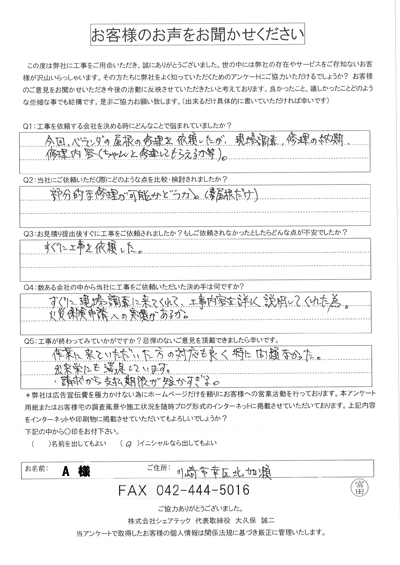 お客様のお声をお聞かせください
この度は弊社に工事をご用命いただき、誠にありがとうございました。世の中には弊社の存在やサービスをご存知ないお客様が
沢山いらっしゃいます。その方たちに弊社をよく知っていただくためのアンケートにご協力いただけるでしょうか？ お客様
のご意見をお聞かせいただき今後の活動に反映させていただきたいと考えております。良かったこと、嬉しかったことどのよう
な些細な事でも結構です。是非ご協力お願い致します。（出来るだけ具体的に書いていただければ幸いです）
Q1：工事を依頼する会社を決める時にどんなことで悩まれていましたか？
今回、ベランダの屋根の修理を依頼したが、現場調査、修理の依頼、
修理内容（ちゃんと修理してもらえるか等）。
Q2：当社にご依頼いただく際にどのような点を比較・検討されましたか？
部分的な修理が可能かどうか。（屋根だけ）
Q3：お見積り提出後すぐに工事をご依頼されましたか？もしご依頼されなかったとしたらどんな点が不安でしたか？
すぐに工事を依頼した。
Q4：数ある会社の中から当社に工事をご依頼いただいた決め手は何ですか？
すぐに現場調査に来てくれて、工事内容を詳しく説明してくれた為。
火災保険申請への実績があるから。
Q5：工事が終わってみていかがですか？忌憚のないご意見を頂戴できましたら幸いです。
作業に来ていただいた方の対応も良く特に問題なかった。
出来栄にも満足しています。
・請求から支払期限が短かすぎる。
＊弊社は広告宣伝費を極力かけない為にホームページだけを頼りにお客様への営業活動を行っております。本アンケート
用紙またはお客様宅の調査風景や施工状況を随時ブログ形式のインターネットに掲載させていただいております。上記内容
をインターネットや印刷物に掲載させていただいてもよろしいでしょうか？
下記の中から〇印をお付下さい。
（ ）名前を出してもよい （〇）イニシャルなら出してもよい
お名前： A 様 ご住所： 川崎市幸区北加瀬
FAX 042-444-5016
富田
ご協力ありがとうございました。
株式会社シェアテック 代表取締役 大久保 誠二
当アンケートで取得したお客様の個人情報は関係法規に基づき厳正に管理いたします。